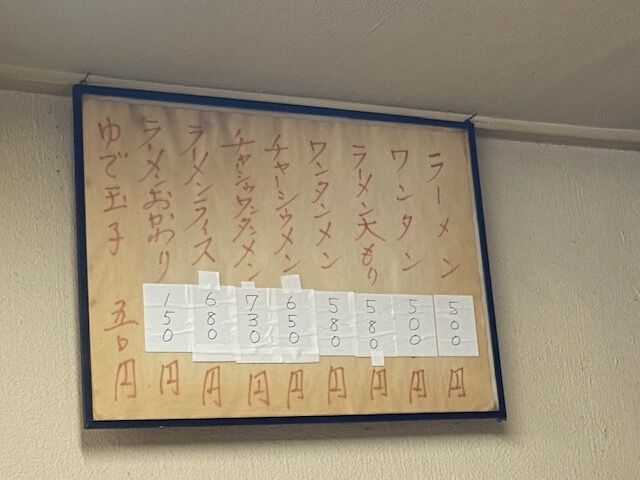 ラーメン 500円
ワンタン 500円
ラーメン大もり 580円
ワンタンメン 580円
チャーシウメン 650円
チャーシウワンタンメン 730円
ラーメンライス 680円
ラーメンおかわり 150円
ゆで玉子 五〇円